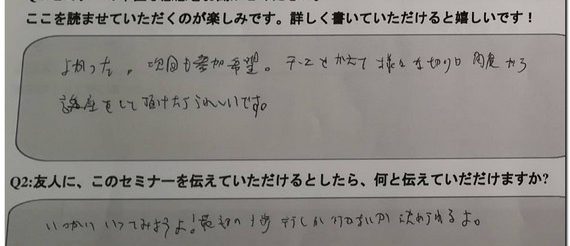 ここを読ませていただくのが楽しみです。詳しく書いていただけると嬉しいです！
よかった。次回も参加希望。テーマをかえて様々な切り口 角度から
講座をして頂けたらうれしいです。
Q2:友人に、このセミナーを伝えていただけるとしたら、何と伝えていだだけますか?
いってみようよ！最初の1歩 行くか行かないか決められるよ。